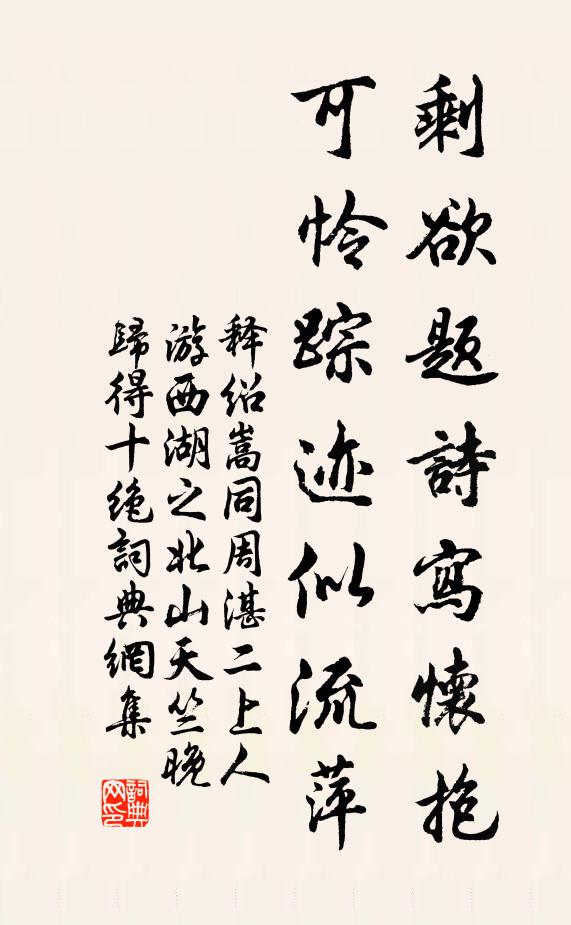 剩欲題詩寫懷抱
可怜踪迹似流萍
释绍嵩同周湛二上人
游西湖之北山天竺晚
歸得十絶詞典網集
詞典网印